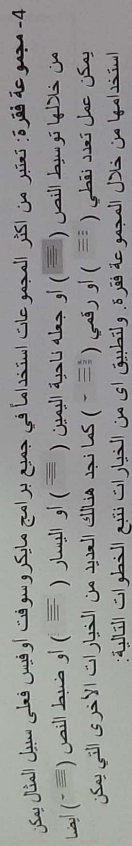 4- مجموعة فقرة: تعتبر من اكثر المجموعات استخداماً في جميع برامج مايكروسوفت اوفيس فعلى سبيل المثال يمكن
من خلالها توسيط النص ( ) أو جعله ناحية اليمين ( ) أو اليسار ( ) أو ضبط النص ( ) ايضا
يمكن عمل تعدد نقطي ( ) أو رقمي ( ) كما نجد هنالك العديد من الخيارات الأخرى التي يمكن
استخدامها من خلال المجموعة فقرة ولتطبيق اى من الخيارات نتبع الخطوات التالية: